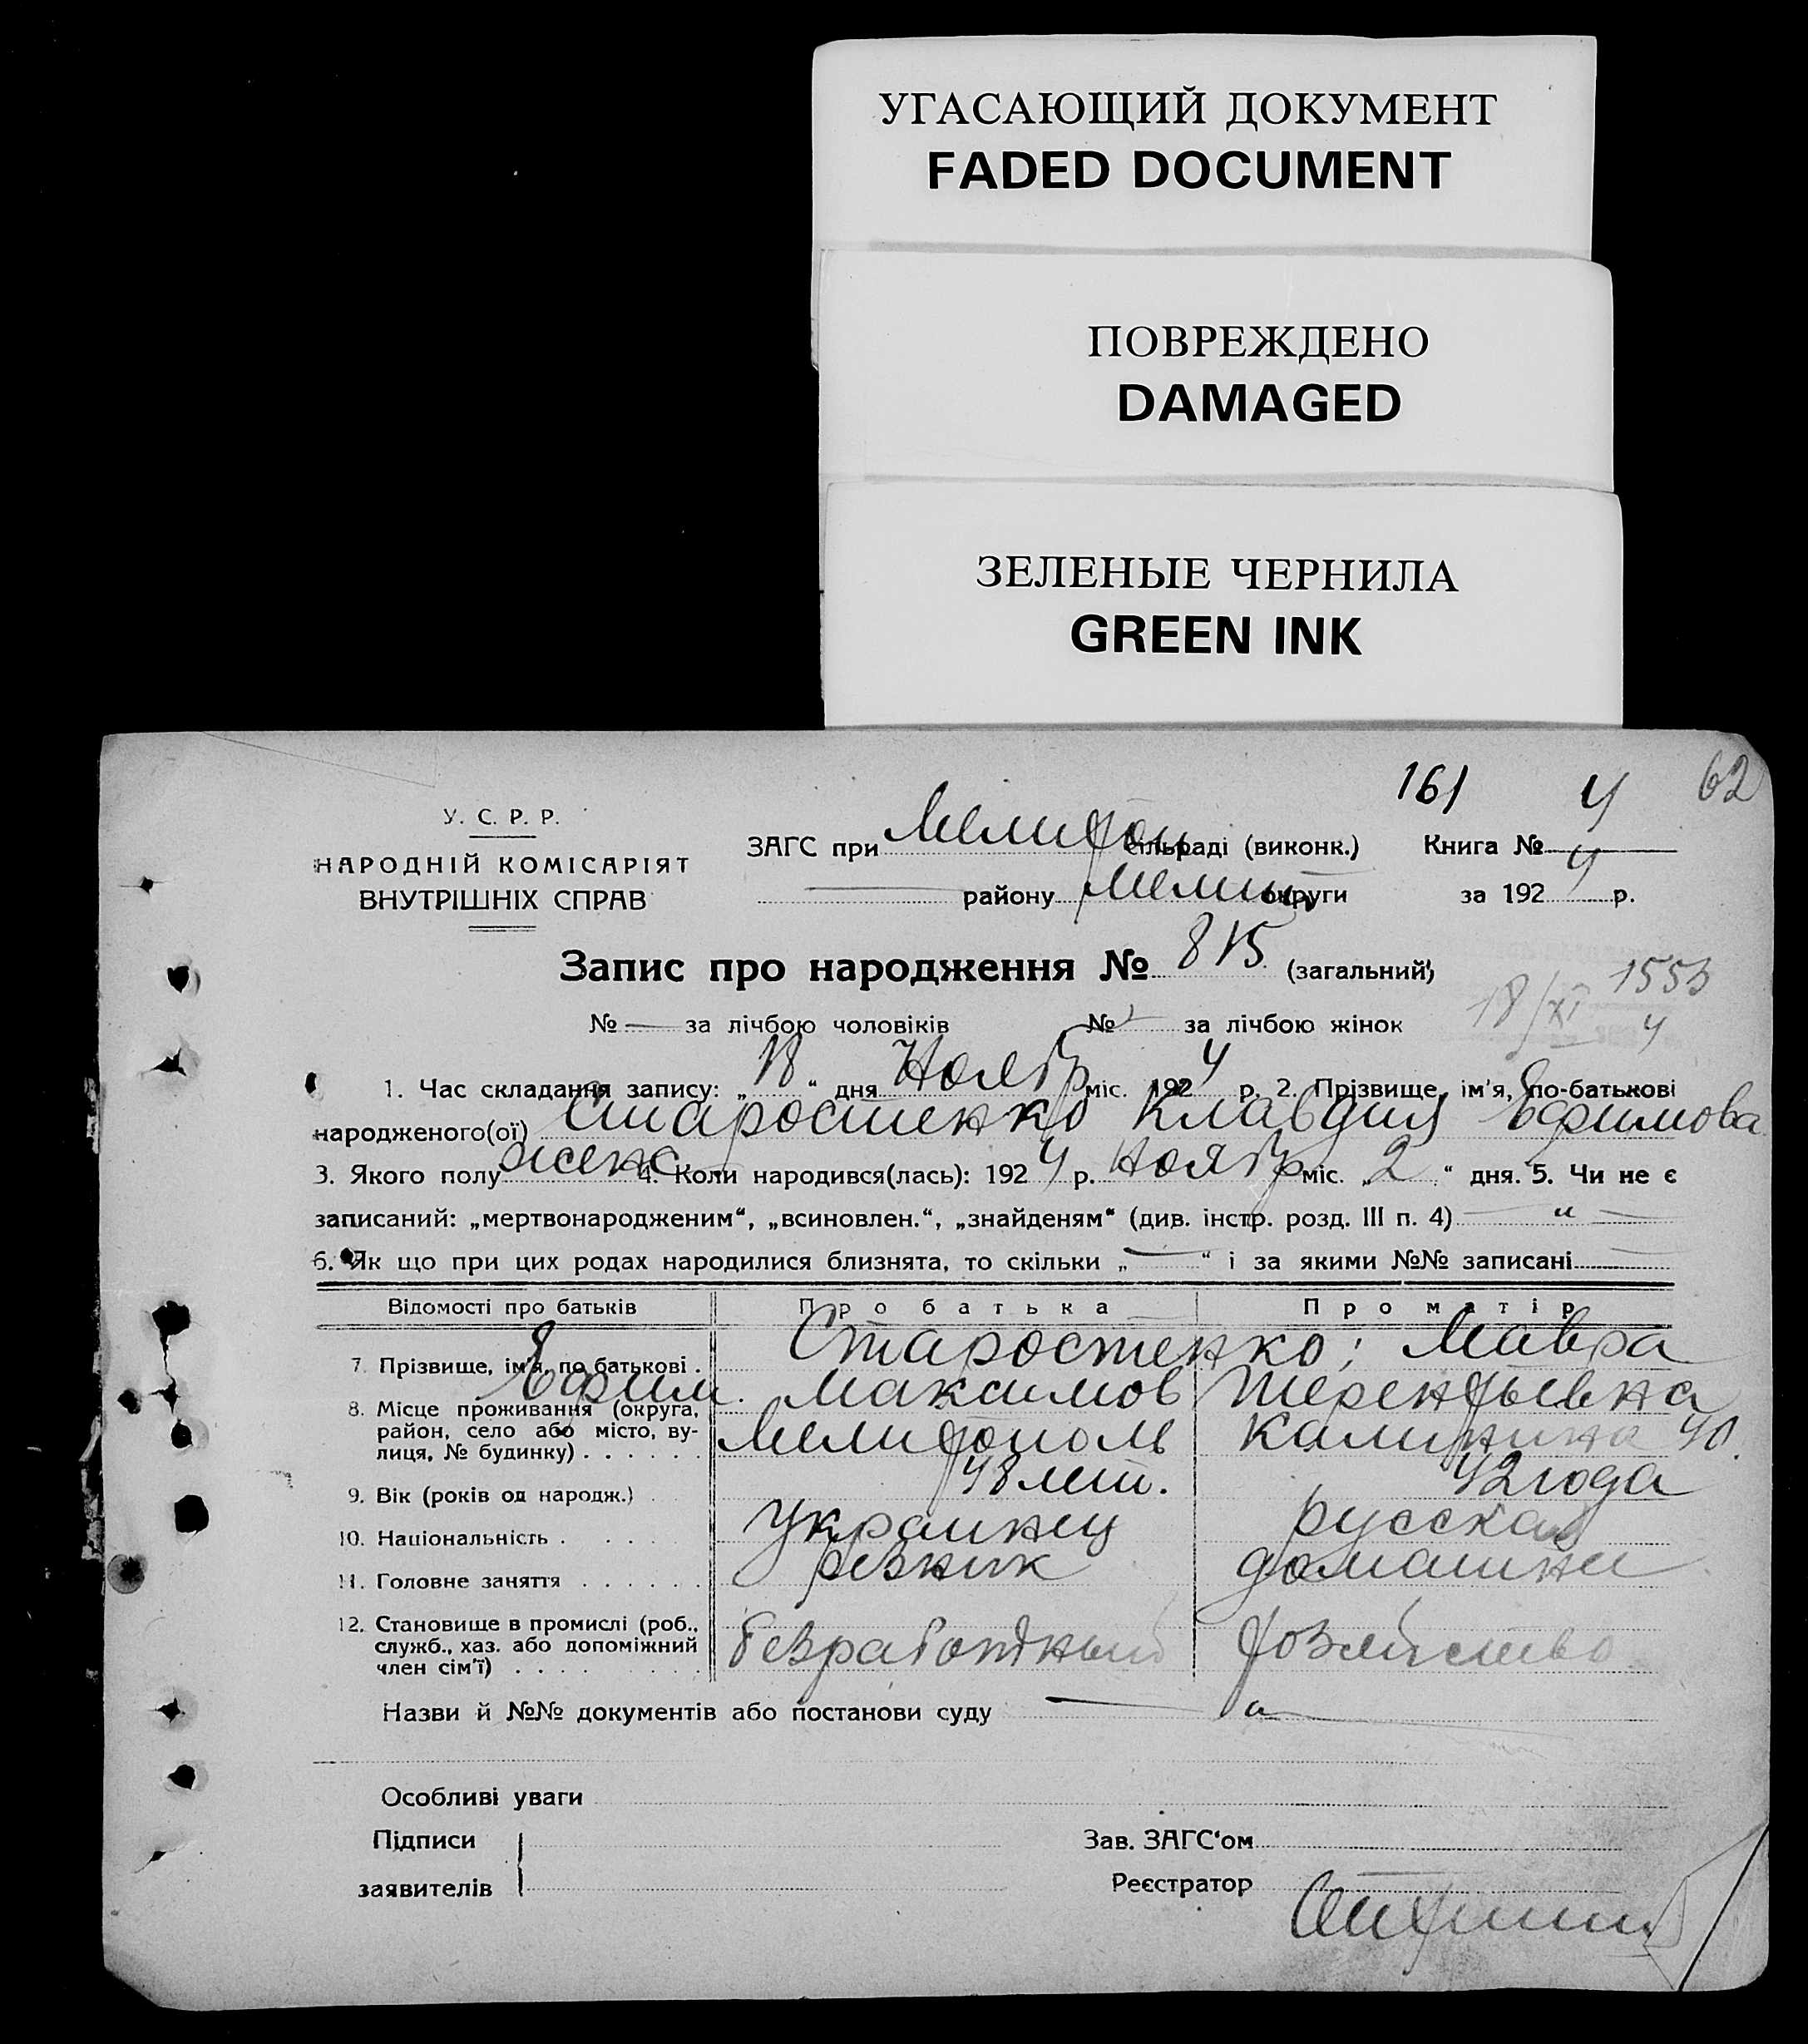 УГАСАЮЩИЙ ДОКУМЕНТ
FADED DOCUMENT
ПОВРЕЖДЕНО
DAMAGED
ЗЕЛЕНЫЕ ЧЕРНИЛА
GREEN INK
161 4 62
У. С. Р. Р.
НАРОДНІЙ КОМІСАРІЯТ
ВНУТРІШНІХ СПРАВ
ЗАГС при Мелитоп сільраді (виконк.) Книга №
району Мелит округи за 192 4 р.
Запис про народження № 815 (загальний)
18/XI 1553
4
№ — за лічбою чоловіків № за лічбою жінок
1. Час складання запису: „ 18 “ дня Ноябр міс. 192 4 р. 2. Прізвище, ім'я, по-батькові
народженого(ої) Старостенко Клавдия Ефимова
3. Якого полу женс 4. Коли народився(лась): 192 4 р. Ноябр міс. „ 2 “ дня. 5. Чи не є
записаний: „мертвонародженим“, „всиновлен.“, „знайденям“ (див. інстр. розд. III п. 4) — " —
6. Як що при цих родах народилися близнята, то скільки „ — “ і за якими №№ записані —
Відомості про батьків Про батька Про матір
7. Прізвище, ім'я, по батькові . Старостенко; Мавра
Ефим. Максимов Терентьевна
8. Місце проживання (округа, район, село або місто, ву-
лиця, № будинку) . . . . . . Мелитополь Калинина 40.
9. Вік (років од народж.) . 48 лет. 42 года
10. Національність . . . . украинец русская
11. Головне заняття . . . . . . резник домашнее
12. Становище в промислі (роб.,
служб., хаз. або допоміжний
член сім'ї) . . . . . . . . . безработный хозяйство
Назви й №№ документів або постанови суду
Особливі уваги
Підписи
заявителів
Зав. ЗАГС'ом
Реєстратор